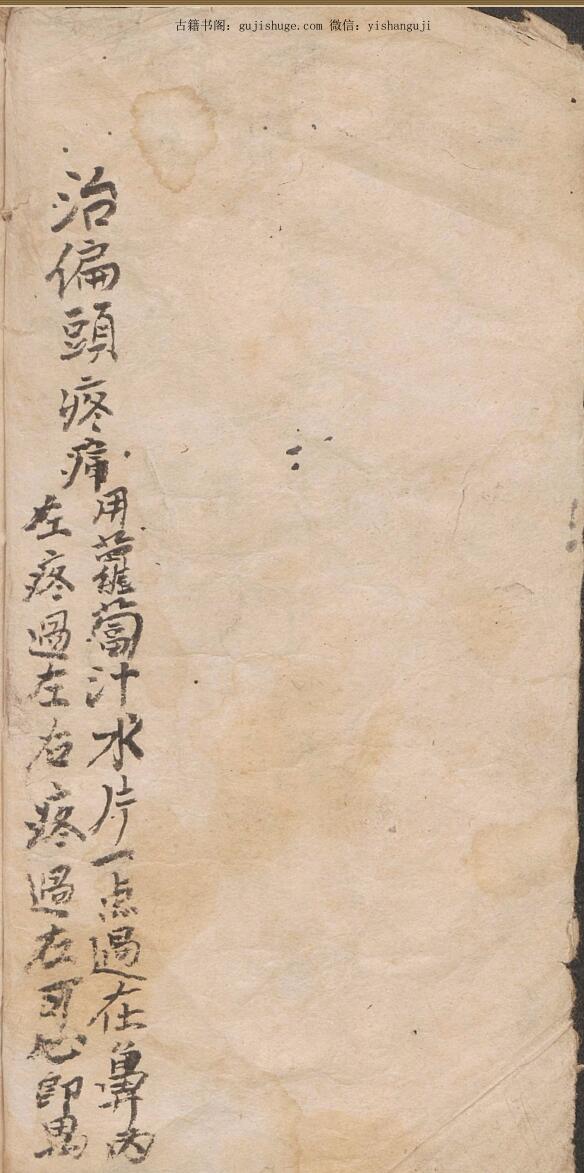 古籍书阁：gujishuge.com 微信：yishanguji
治偏頭疼痛
用蘿蔔汁水片一点過在鼻内
左疼過左右疼過右可心即